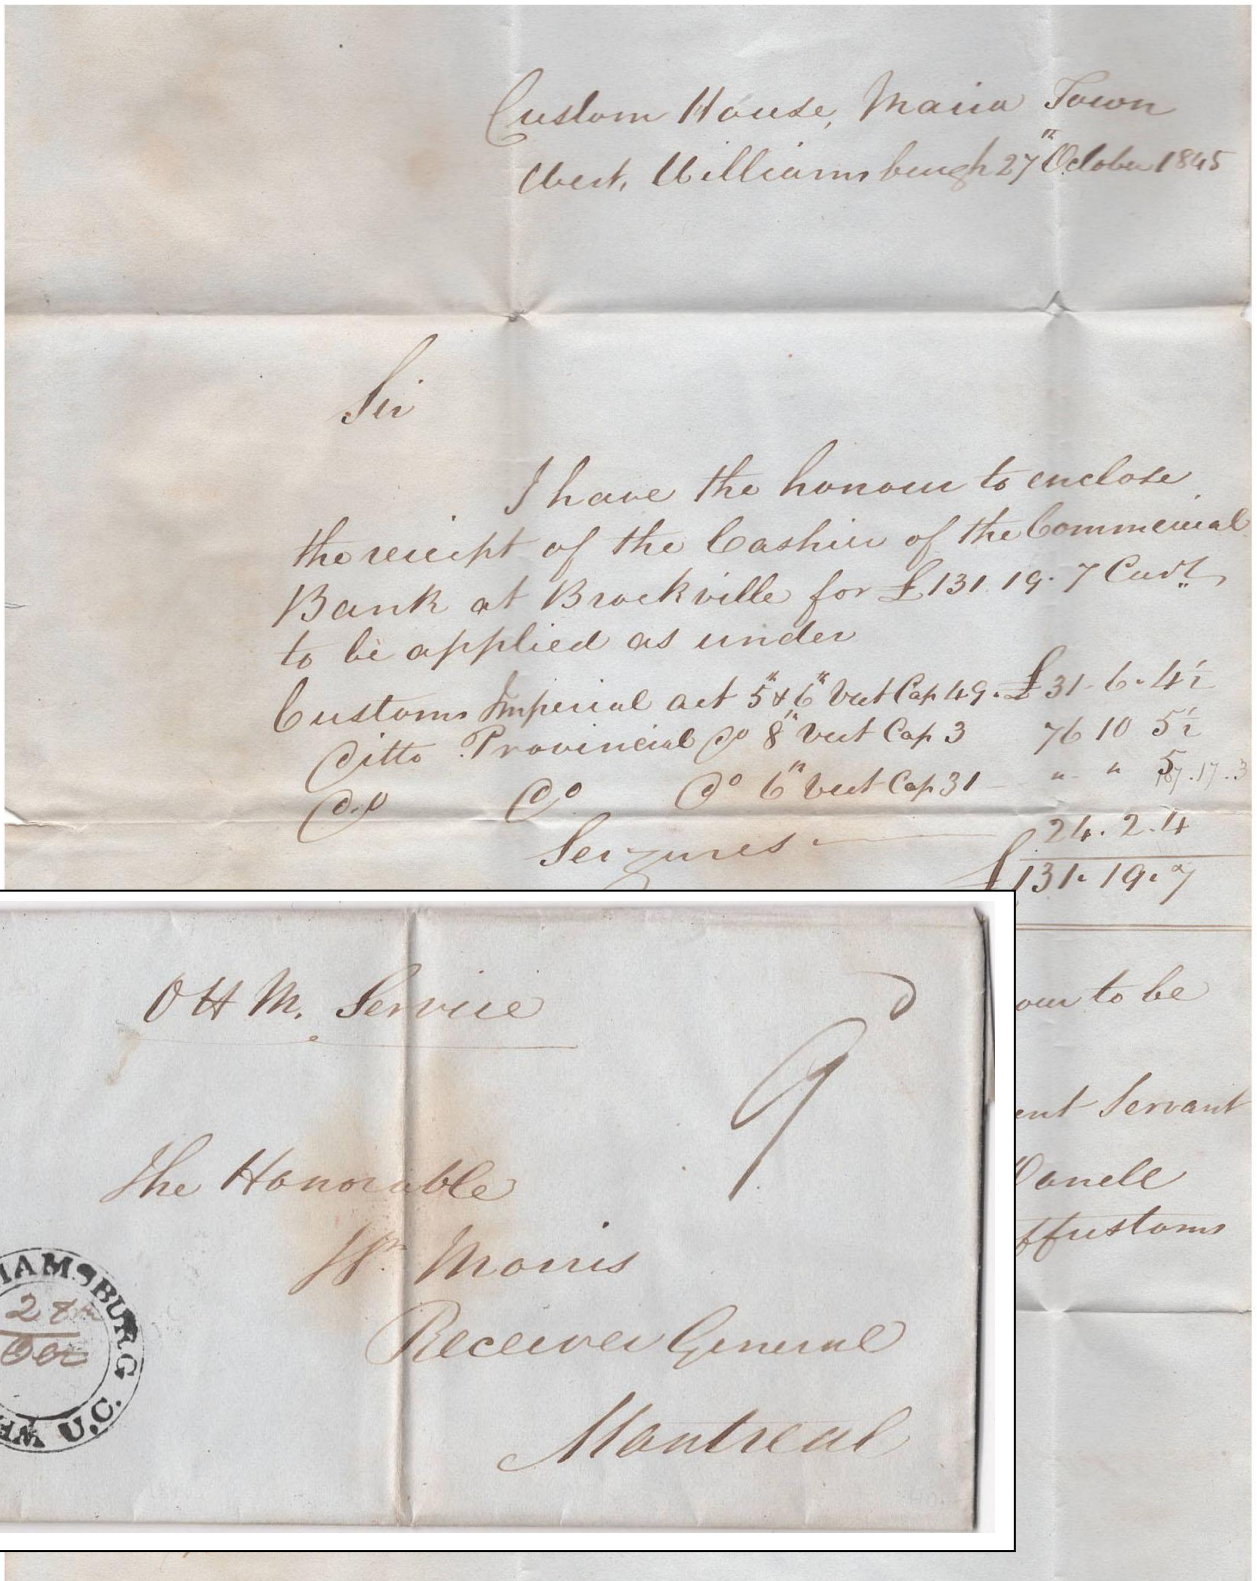 Custom House, Maria Town
West, Williamsburgh 27th October 1845
Sir
I have the honour to enclose
the reciept of the Cashier of the Commercial
Bank at Brockville for £131 19. 7 Curr.
to be applied as under
Customs Imperial act 5th & 6th Vict Cap 49. £31. 6. 4½
Ditto Provincial do 8th Vict Cap 3 76 10 5½
Do Do Do 6th Vict Cap 31 " " 5
107.17.3
Seizures 24. 2. 4
£131. 19. 7
our to be
ent Servant
Donell
of Customs
O H M. Service
9 D
The Honorable
Wm Morris
Receiver General
Montreal
IAMSBURG U.C. WE
28th
Oct